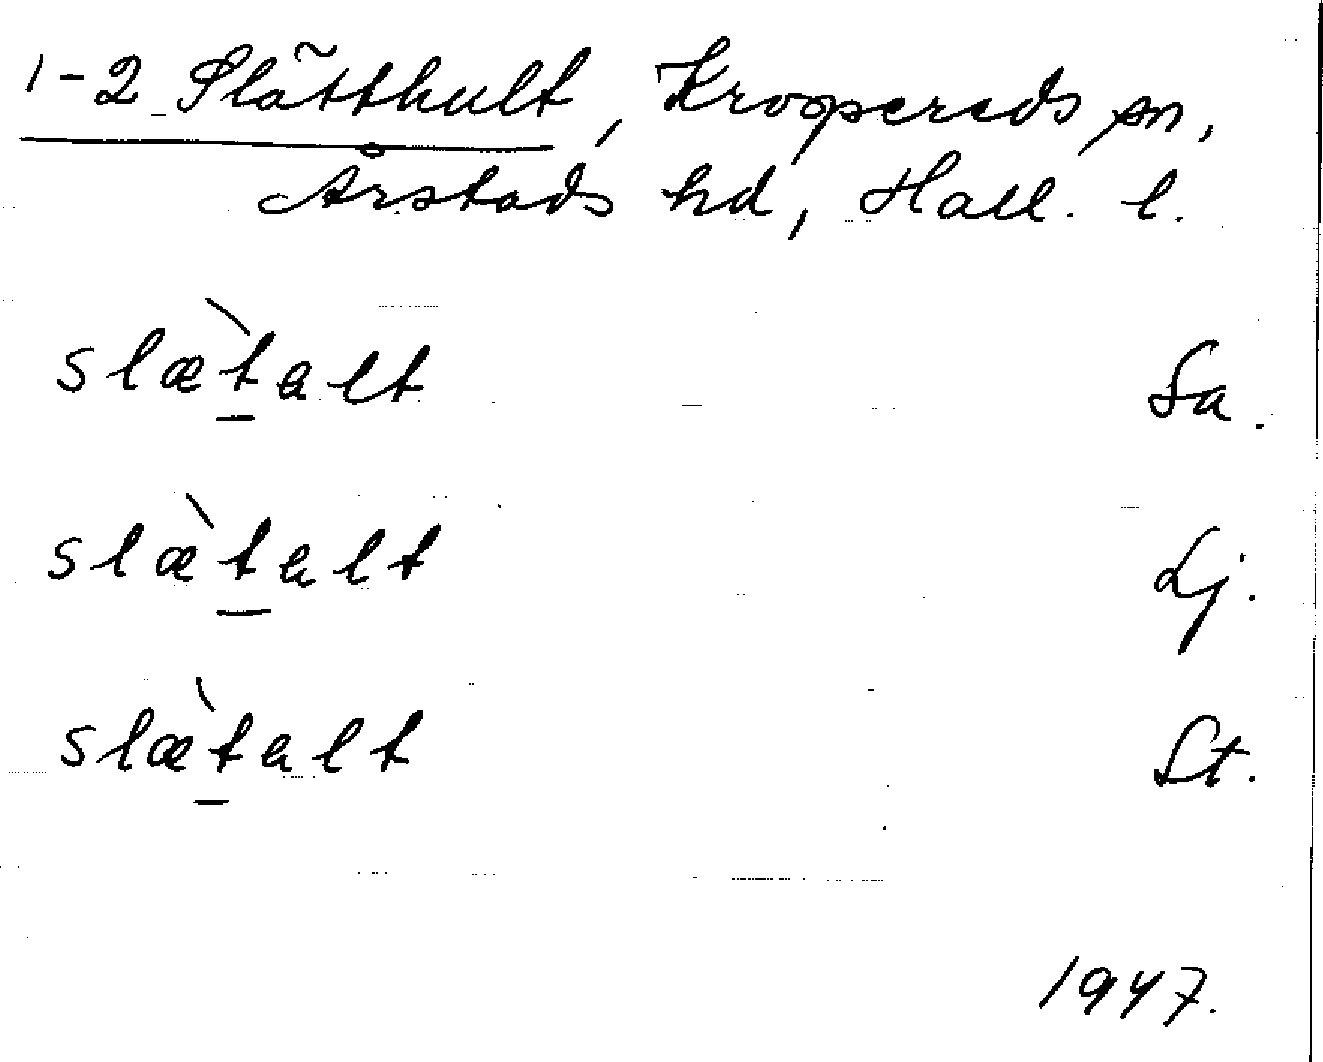 1-2 Slätthult, Kropereds sn,
Årstads hd, Hall. l.
slæ̀t̲alt Sa.
slæ̀t̲alt Lj.
slæ̀t̲alt St.
1947.